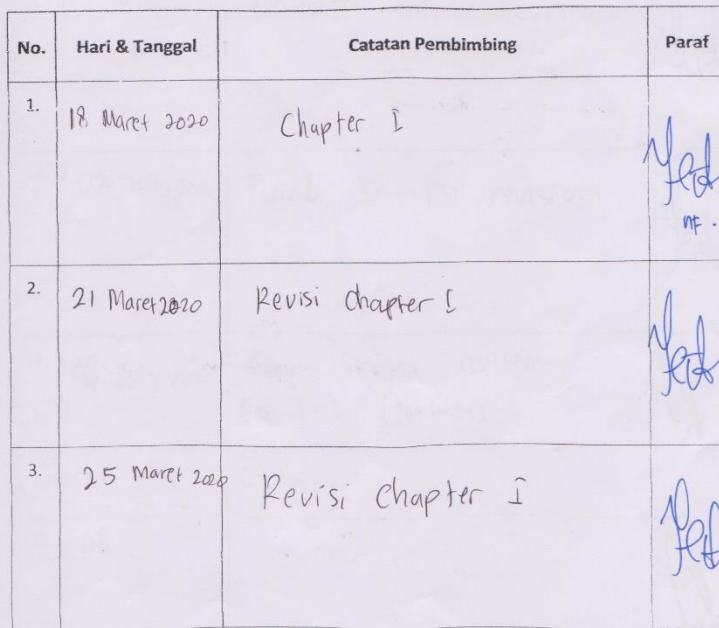 No. Hari & Tanggal Catatan Pembimbing Paraf
1. 18 Maret 2020 Chapter I
2. 21 Maret 2020 Revisi Chapter I
3. 25 Maret 2020 Revisi Chapter I